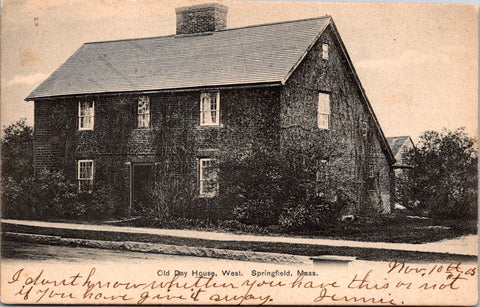 Old Day House, West. Springfield, Mass.
Nov. 10th 05
I don't know whither you have this or not
if you have give it away. Jennie.